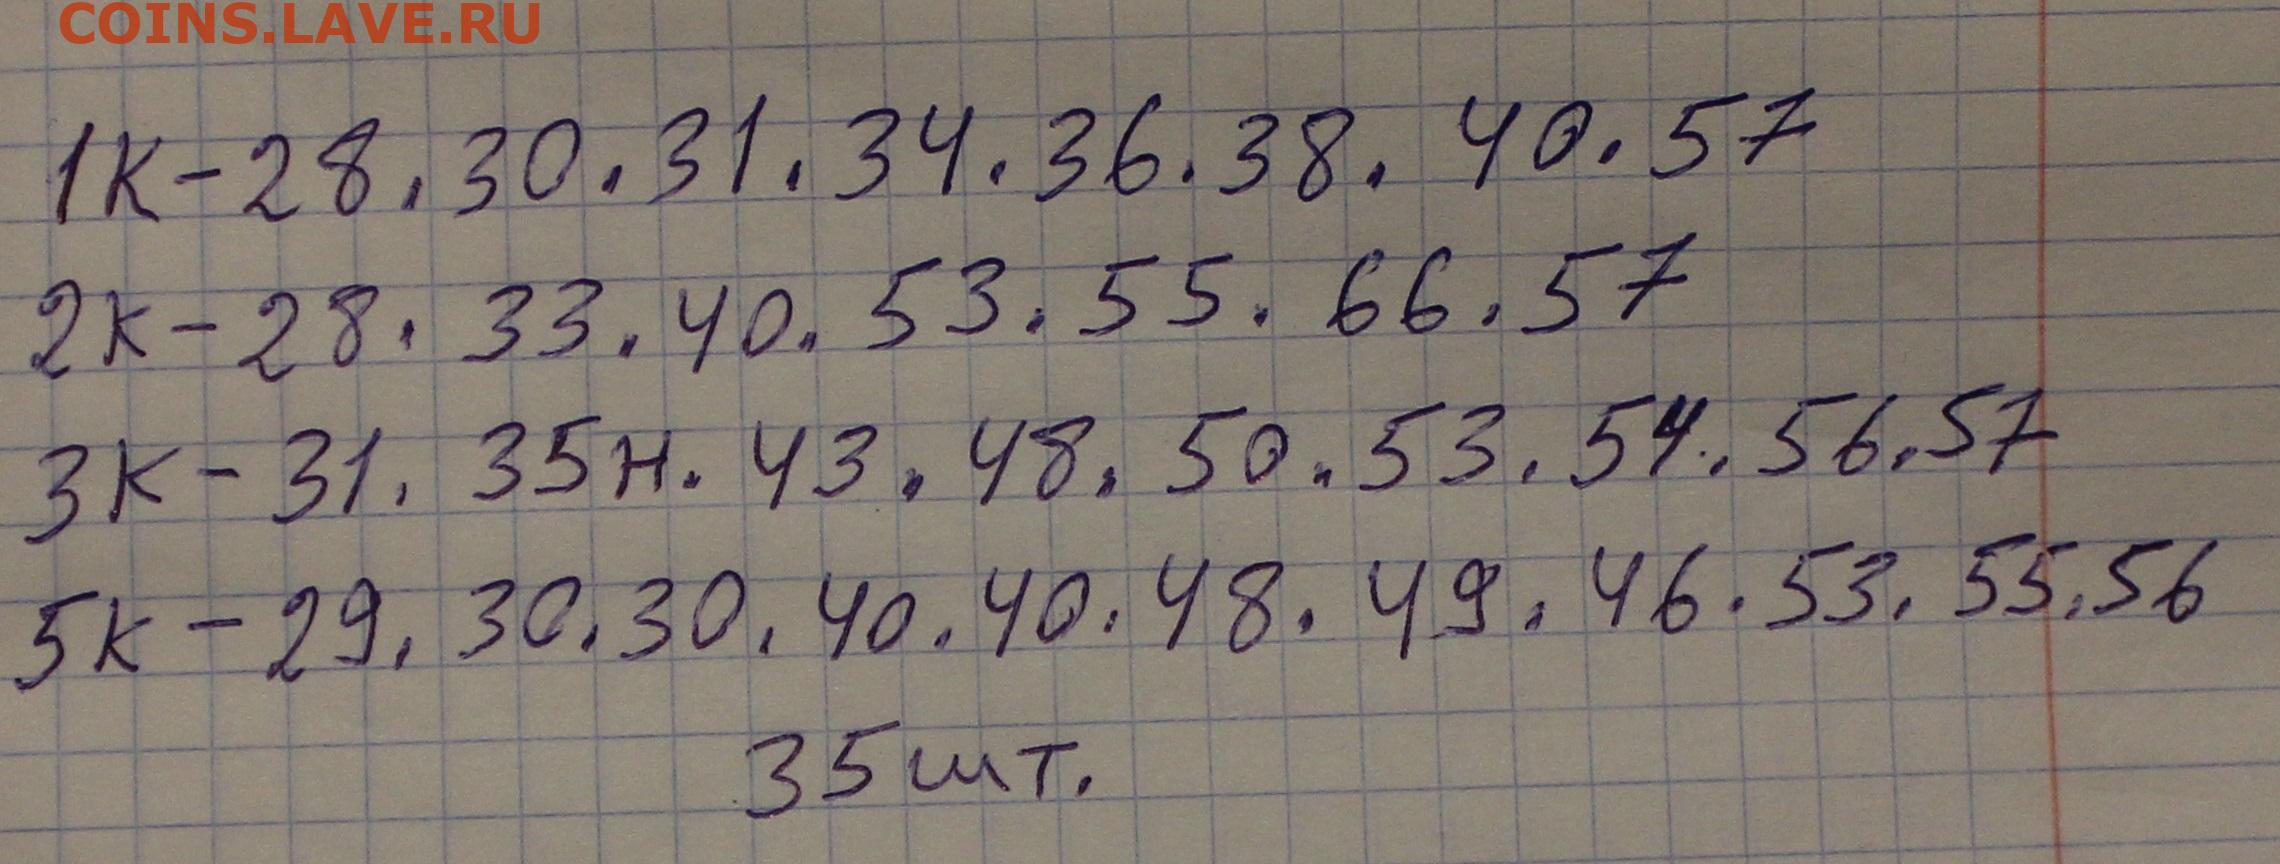 COINS.LAVE.RU
1к-28.30.31.34.36.38.40.57
2к-28.33.40.53.55.66.57
3к-31.35н.43.48.50.53.54.56.57
5к-29.30.30.40.40.48.49.46.53.55.56
35шт.